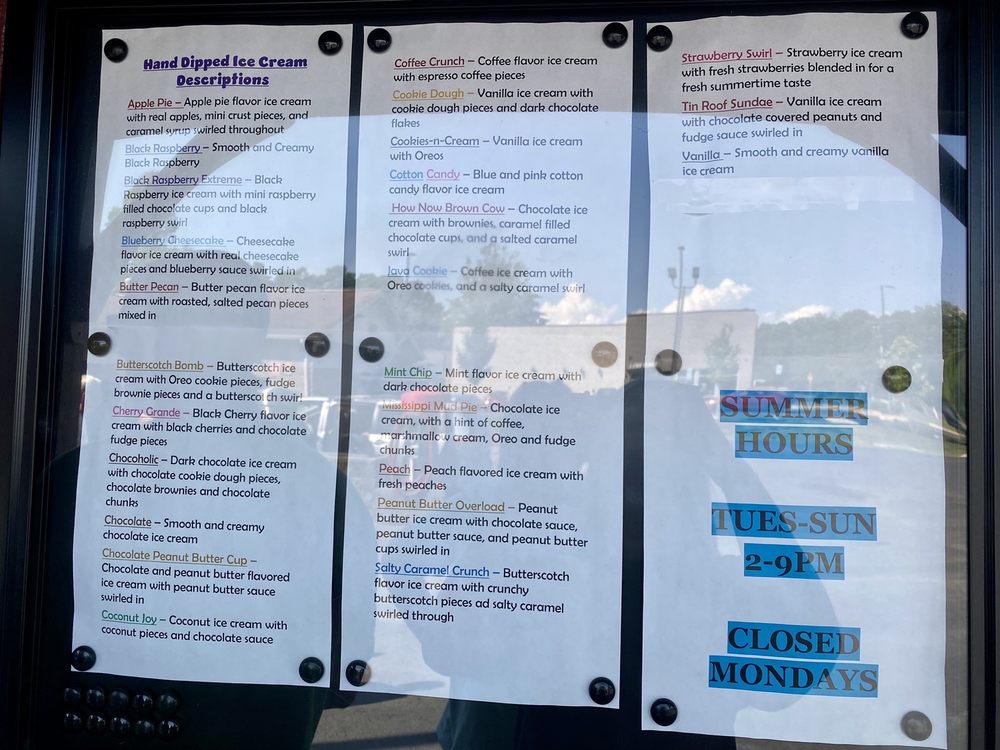 Hand Dipped Ice Cream
Descriptions
Apple Pie – Apple pie flavor ice cream
with real apples, mini crust pieces, and
caramel syrup swirled throughout
Black Raspberry – Smooth and Creamy
Black Raspberry
Black Raspberry Extreme – Black
Raspberry ice cream with mini raspberry
filled chocolate cups and black
raspberry swirl
Blueberry Cheesecake – Cheesecake
flavor ice cream with real cheesecake
pieces and blueberry sauce swirled in
Butter Pecan – Butter pecan flavor ice
cream with roasted, salted pecan pieces
mixed in
Butterscotch Bomb – Butterscotch ice
cream with Oreo cookie pieces, fudge
brownie pieces and a butterscotch swirl
Cherry Grande – Black Cherry flavor ice
cream with black cherries and chocolate
fudge pieces
Chocoholic – Dark chocolate ice cream
with chocolate cookie dough pieces,
chocolate brownies and chocolate
chunks
Chocolate – Smooth and creamy
chocolate ice cream
Chocolate Peanut Butter Cup –
Chocolate and peanut butter flavored
ice cream with peanut butter sauce
swirled in
Coconut Joy – Coconut ice cream with
coconut pieces and chocolate sauce
Coffee Crunch – Coffee flavor ice cream
with espresso coffee pieces
Cookie Dough – Vanilla ice cream with
cookie dough pieces and dark chocolate
flakes
Cookies-n-Cream – Vanilla ice cream
with Oreos
Cotton Candy – Blue and pink cotton
candy flavor ice cream
How Now Brown Cow – Chocolate ice
cream with brownies, caramel filled
chocolate cups, and a salted caramel
swirl
Java Cookie – Coffee ice cream with
Oreo cookies, and a salty caramel swirl
Mint Chip – Mint flavor ice cream with
dark chocolate pieces
Mississippi Mud Pie – Chocolate ice
cream, with a hint of coffee,
marshmallow cream, Oreo and fudge
chunks
Peach – Peach flavored ice cream with
fresh peaches
Peanut Butter Overload – Peanut
butter ice cream with chocolate sauce,
peanut butter sauce, and peanut butter
cups swirled in
Salty Caramel Crunch – Butterscotch
flavor ice cream with crunchy
butterscotch pieces ad salty caramel
swirled through
Strawberry Swirl – Strawberry ice cream
with fresh strawberries blended in for a
fresh summertime taste
Tin Roof Sundae – Vanilla ice cream
with chocolate covered peanuts and
fudge sauce swirled in
Vanilla – Smooth and creamy vanilla
ice cream
SUMMER
HOURS
TUES-SUN
2-9PM
CLOSED
MONDAYS